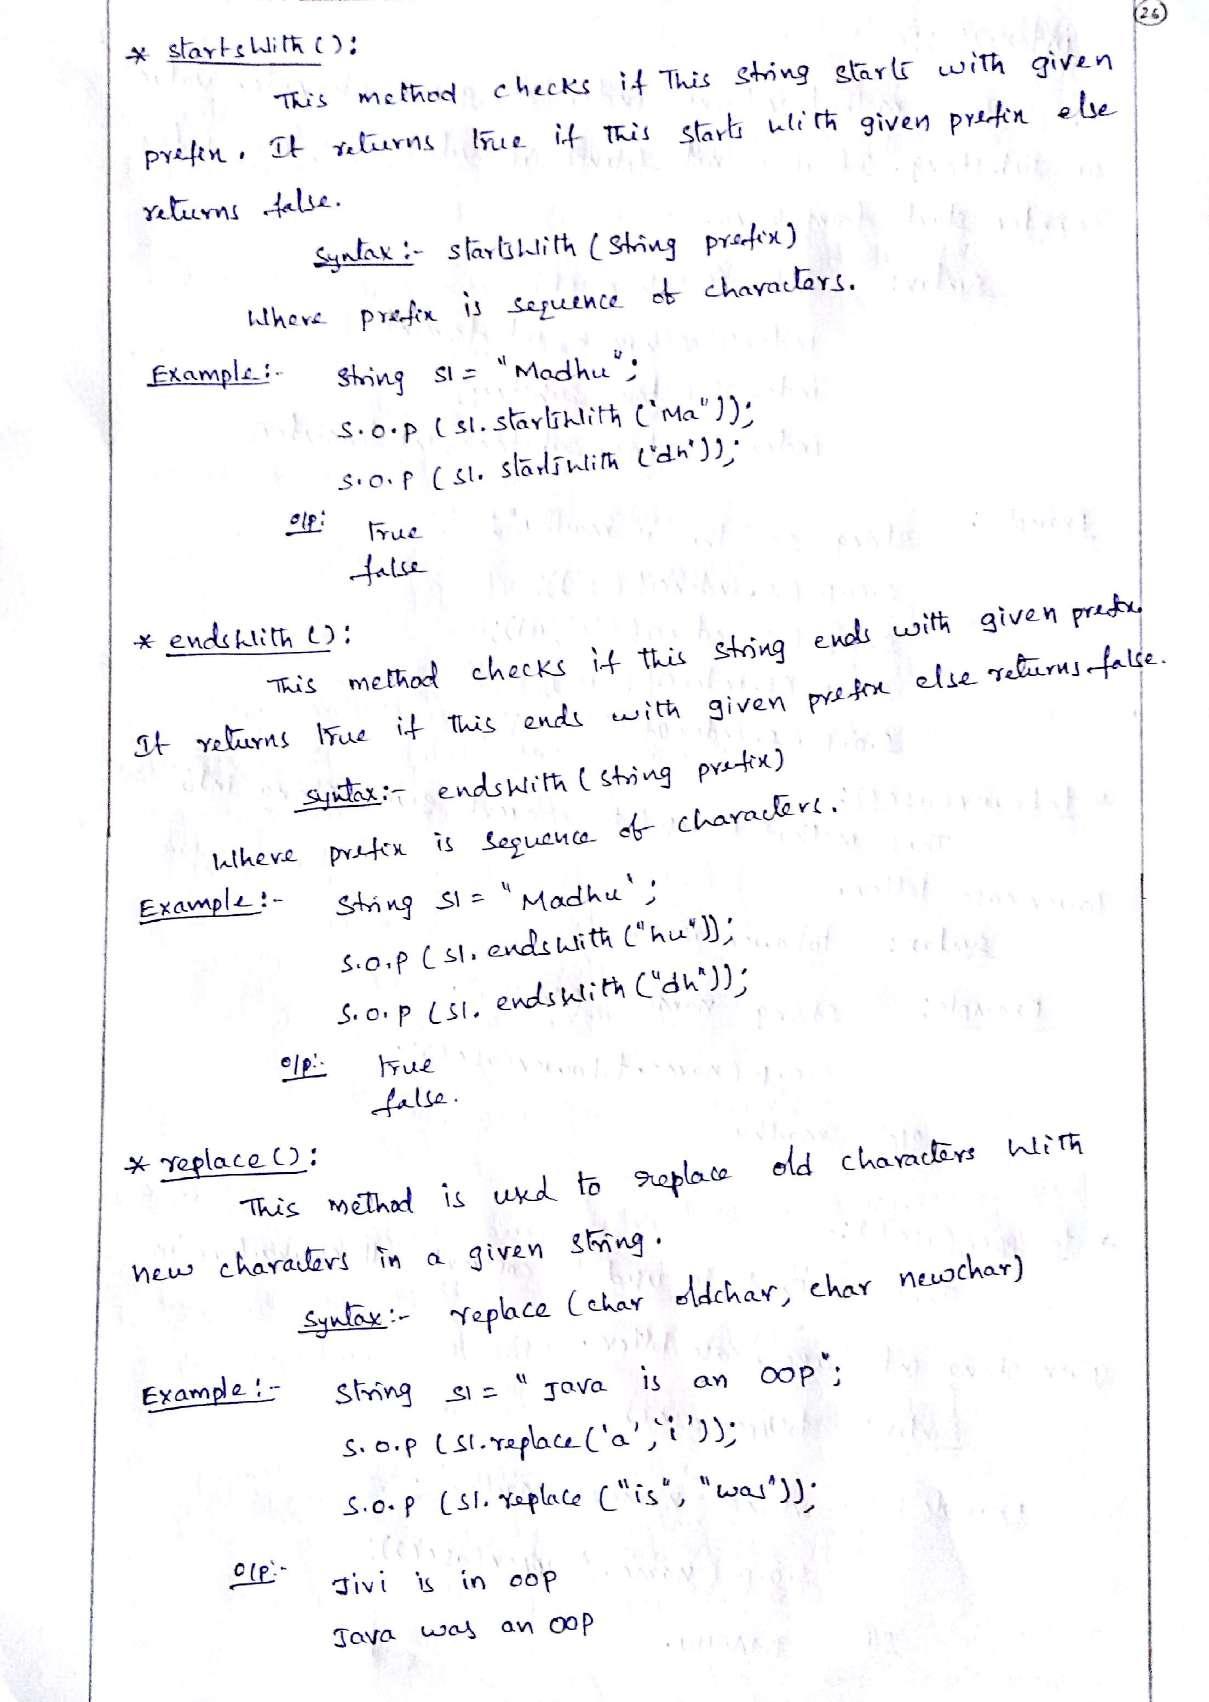 26
* startsWith():
This method checks if This string starts with given
prefix. It returns true if this starts with given prefix else
returns false.
Syntax:- startsWith (String prefix)
Where prefix is sequence of characters.
Example:- String s1 = "Madhu";
S.o.p (s1.startsWith ("Ma"));
S.o.p (s1.startsWith ("dh"));
o/p: True
false
* endsWith():
This method checks if this string ends with given prefix.
It returns true if this ends with given prefix else returns false.
syntax:- endsWith (string prefix)
Where prefix is sequence of characters.
Example:- String s1 = "Madhu";
S.o.p (s1.endswith ("hu"));
S.o.p (s1.endsWith ("dh"));
o/p:- True
false.
* replace():
This method is used to replace old characters with
new characters in a given string.
Syntax:- replace (char oldchar, char newchar)
Example:- String s1 = "Java is an OOP";
S.o.p (s1.replace('a','i'));
S.o.p (s1.replace ("is", "was"));
o/p:- Jivi is in oop
Java was an OOP